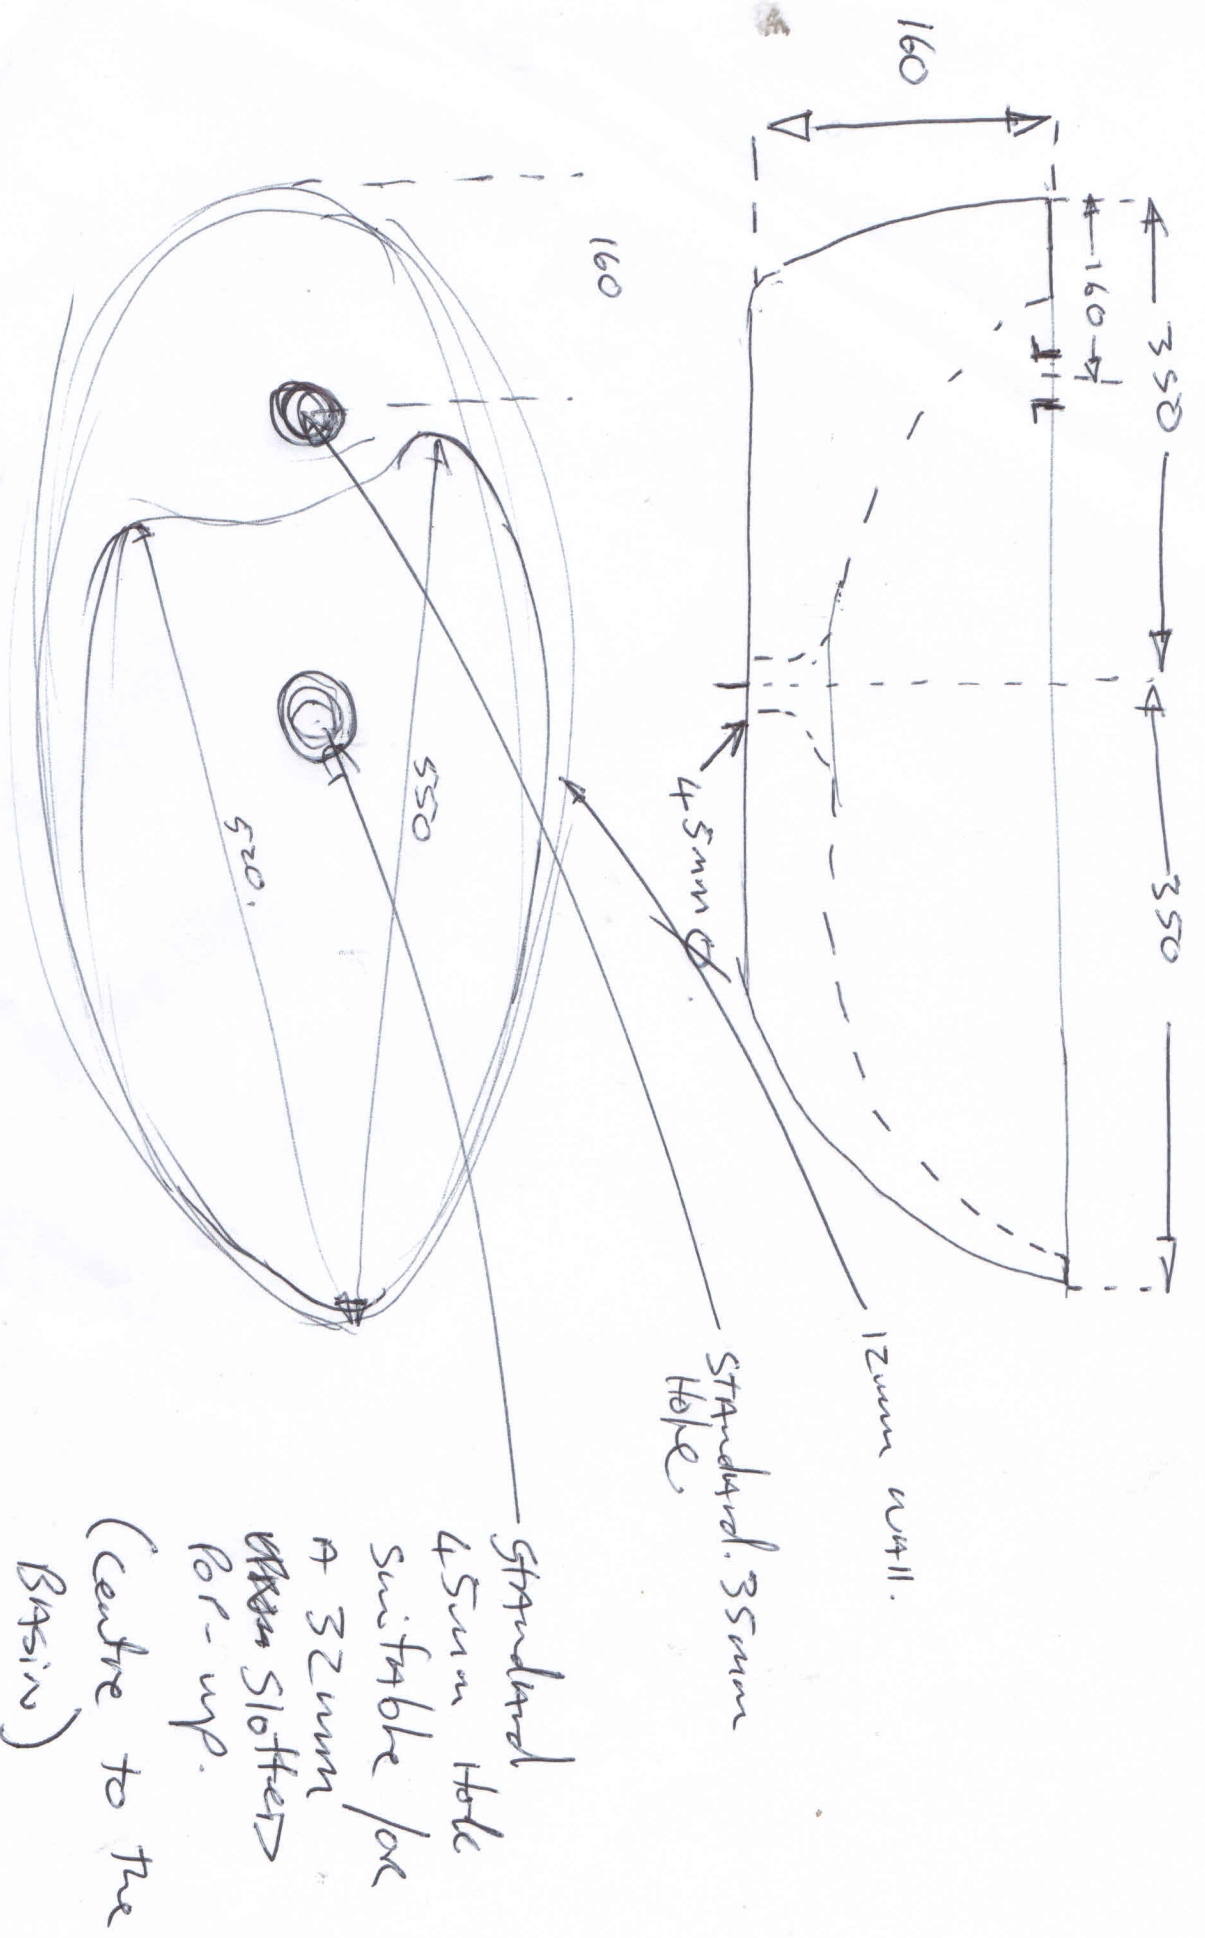 350
350
160
160
45mm Ø
160
550
520.
12mm wall.
Standard. 35mm
Hole
Standard
45mm Hole
Suitable for
A 32mm
Slotted
Pop-up.
(Centre to the
Basin)